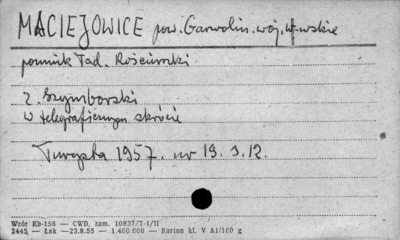 MACIEJOWICE pow. Garwolin. woj. W-wskie
pomnik Tad. Kościuszki
Z. Szymborski
W telegraficznym skrócie
Turysta 1957. nr 19. s. 12.
Wzór Kb-156 — CWD, zam. 10837/T-1/II
2445 — Łak —23.8.55 — 1.400.000 — Karton kl. V A1/160 g